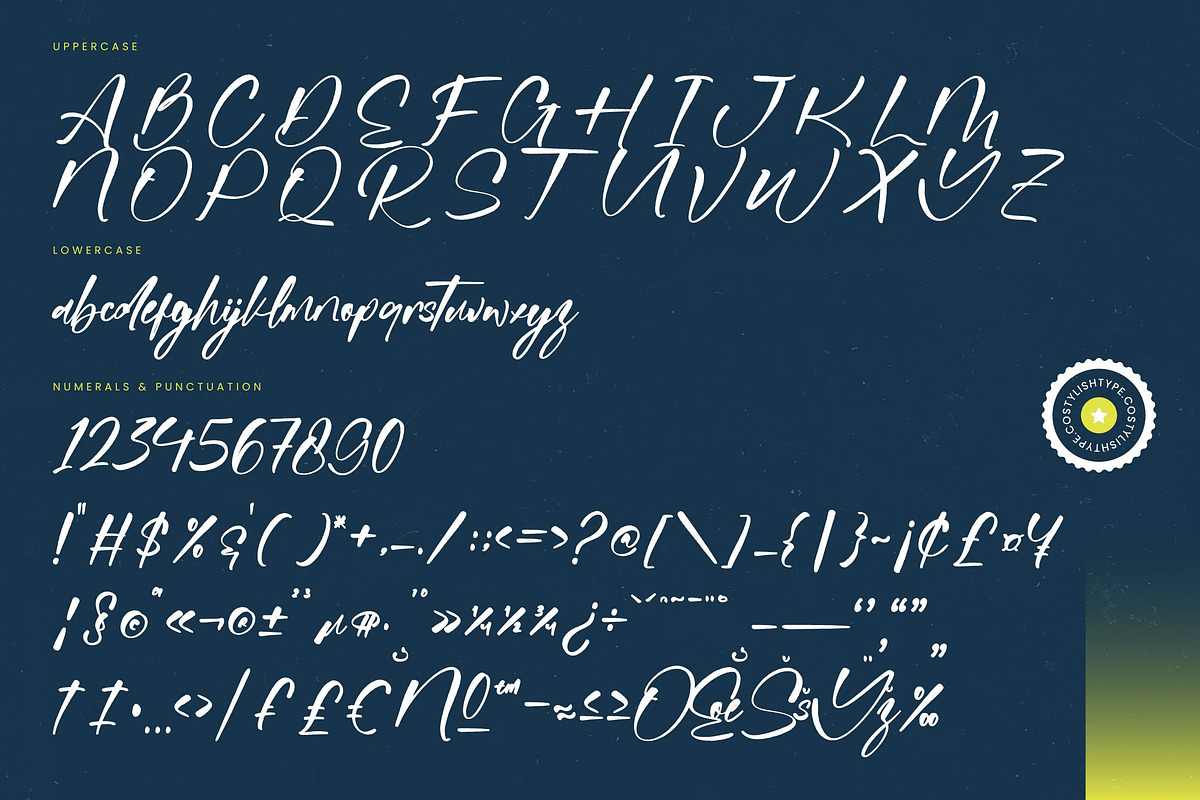 UPPERCASE
ABCDEFGHIJKLM
NOPQRSTUVWXYZ
LOWERCASE
abcdefghijklmnopqrstuvwxyz
NUMERALS & PUNCTUATION
1234567890
!"#$%&'()*+,-./:;<=>?@[\]_{|}~¡¢£¤¥
¦§©ª«¬®±²³µ¶·¹º»¼½¾¿÷–—‘’“”
†‡•…‹›⁄₣£€№™−≈≤≥ŒœŠšŸž‰
STYLISHTYPE.CO
STYLISHTYPE.CO